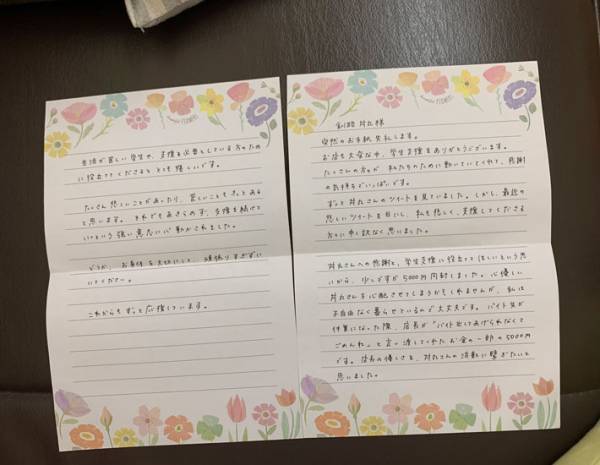 突然のお手紙失礼します。
お店も大変な中、学生支援をありがとうございます。
たくさんの方が私たちのために動いていてくれて、感謝
の気持ちでいっぱいです。
ずっと さんのツイートを見ていました。しかし、最近の
悲しいツイートを目にし、私も悲しく、支援してくださる
方々に申し訳なく思いました。
さんへの感謝と、学生支援に役立ててほしいという思
いから、少しですが5000円同封しました。心優しい
さんを心配させてしまうかもしれませんが、私は
不自由なく暮らせているので大丈夫です。バイト先が
休業になった際、店長が"バイト出してあげられなくて
ごめんね"と言い渡してくれたお金の一部の5000円
です。店長の優しさを、 さんの活動に繋ぎたいと
思いました。
生活が苦しい学生や、支援を必要としている方のため
に役立ててくださるととても嬉しいです。
たくさん悲しいことがあったり、苦しいこともきっとある
と思います。それでもあきらめず、支援を続けて
いくという強い意志に心動かされました。
どうか、お身体を大切にして、頑張りすぎずい
てください。
これからもずっと応援しています。